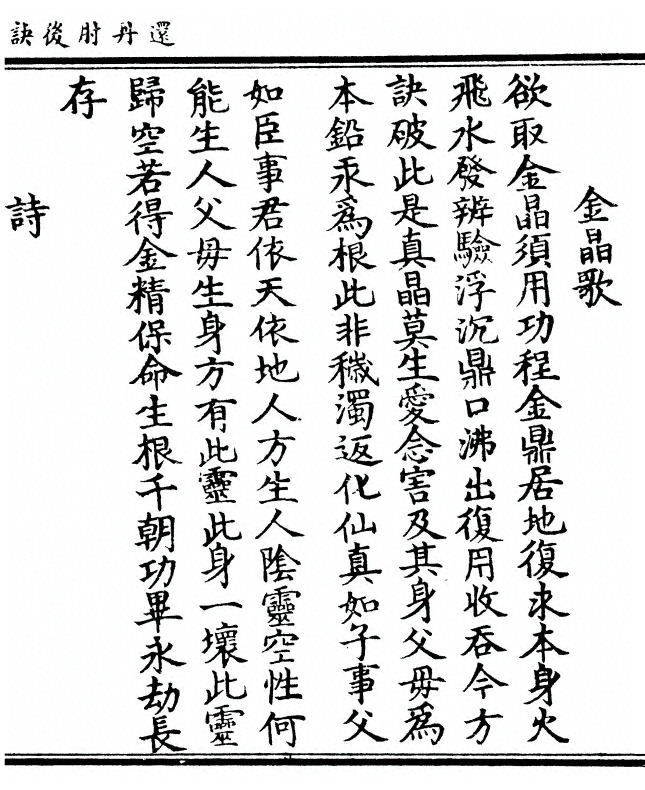 還丹肘後訣
金晶歌
欲取金晶須用功程金鼎居地復求本身火
飛水發辨驗浮沉鼎口沸出復用收吞今方
訣破此是真晶莫生愛念害及其身父毋爲
本鉛汞爲根此非穢濁返化仙真如子事父
如臣事君依天依地人方生人陰靈空性何
能生人父毋生身方有此靈此身一壞此靈
歸空若得金精保命生根千朝功畢永劫長
存
詩